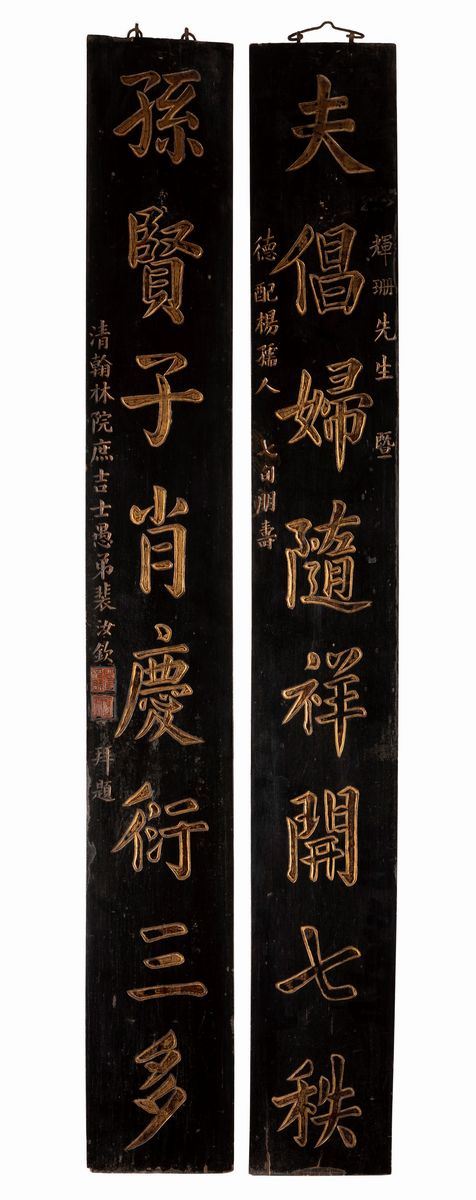 夫倡婦隨祥開七秩
輝珊先生暨
德配楊孺人 七旬朋壽
孫賢子肖慶衍三多
清翰林院庶吉士愚弟裴汝欽 拜題